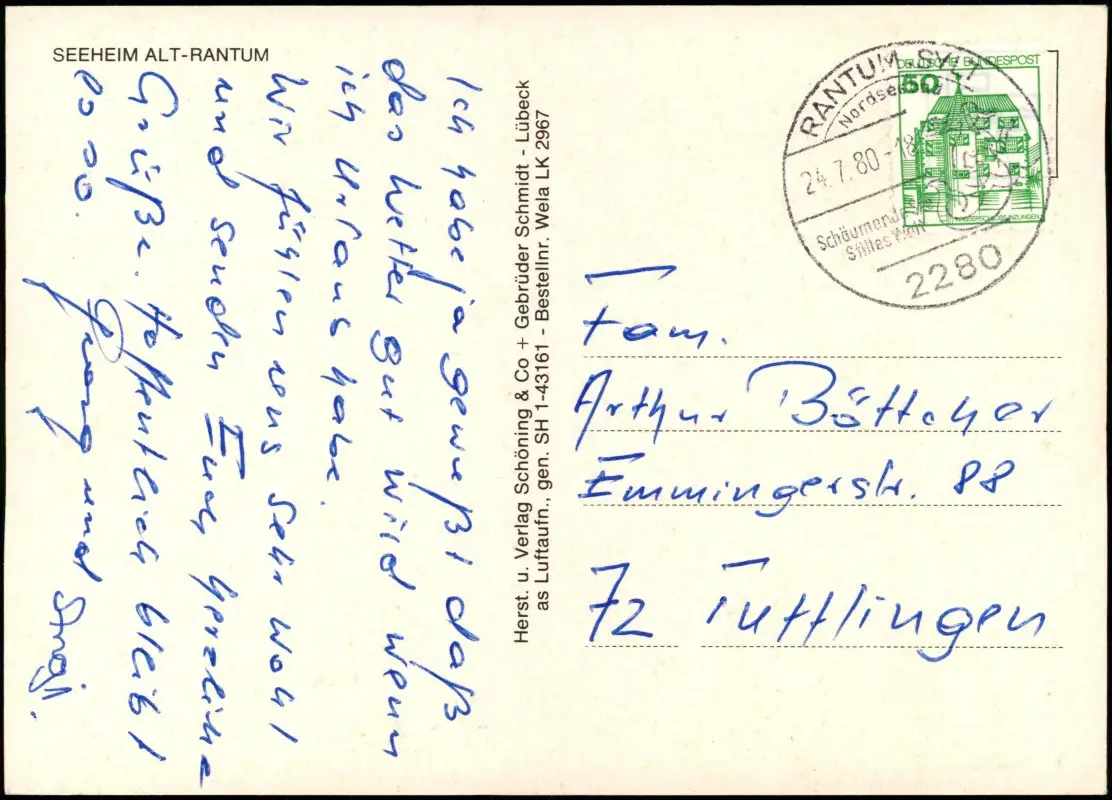 SEEHEIM ALT-RANTUM
Ich habe ja gewußt daß
das Wetter gut wird wenn
ich Urlaub habe.
Wir fühlen uns sehr wohl
und senden Euch herzliche
Grüße. Hoffentlich bleibt
es so.
und
Herst. u. Verlag Schöning & Co + Gebrüder Schmidt - Lübeck
as Luftaufn., gen. SH 1-43161 - Bestellnr. Wela LK 2967
DEUTSCHE BUNDESPOST
50
RANTUM SYLT
24.7.80-18
Schäumende
Stilles Watt
2280
Fam.
Arthur Böttcher
Emmingerstr. 88
72 Tuttlingen